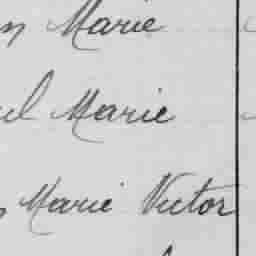 Marie
Marie
Marie Victor